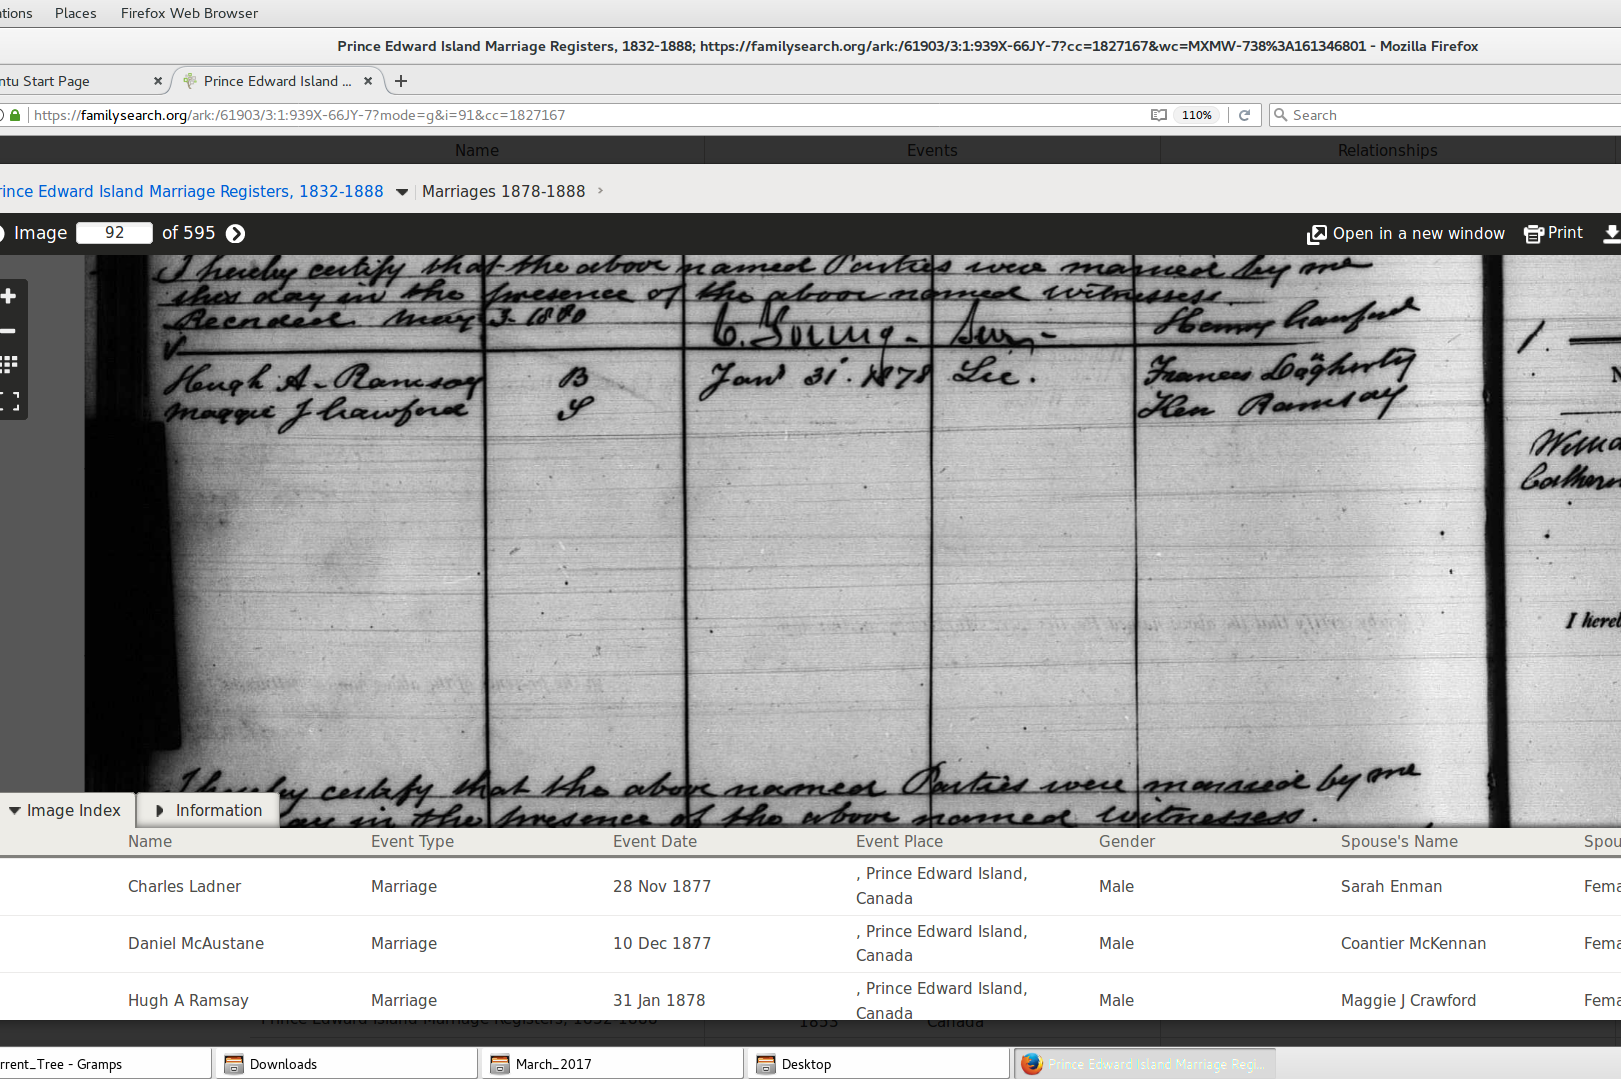 ations Places Firefox Web Browser
Prince Edward Island Marriage Registers, 1832-1888; https://familysearch.org/ark:/61903/3:1:939X-66JY-7?cc=1827167&wc=MXMW-738%3A161346801 - Mozilla Firefox
ntu Start Page × Prince Edward Island ... × +
https://familysearch.org/ark:/61903/3:1:939X-66JY-7?mode=g&i=91&cc=1827167 110% Search
Name Events Relationships
rince Edward Island Marriage Registers, 1832-1888 Marriages 1878-1888 ›
Image 92 of 595 Open in a new window Print
I hereby certify that the above named Parties were married by me
this day in the presence of the above named witnesses
Recorded May 3. 1880
Henry Crawford
1.
Hugh A. Ramsay B Jany 31. 1878 Lic. Frances Dagherty
Maggie J Crawford S Ken Ramsay
I hereby certify that the above named Parties were married by me
day in the presence of the above named witnesses.
I hereb
Image Index Information
Name Event Type Event Date Event Place Gender Spouse's Name Spou
Charles Ladner Marriage 28 Nov 1877 , Prince Edward Island, Canada Male Sarah Enman Fema
Daniel McAustane Marriage 10 Dec 1877 , Prince Edward Island, Canada Male Coantier McKennan Fema
Hugh A Ramsay Marriage 31 Jan 1878 , Prince Edward Island, Canada Male Maggie J Crawford Fema
Prince Edward Island Marriage Registers, 1832-1888 1853 Canada
rrent_Tree - Gramps Downloads March_2017 Desktop Prince Edward Island Marriage Regi...